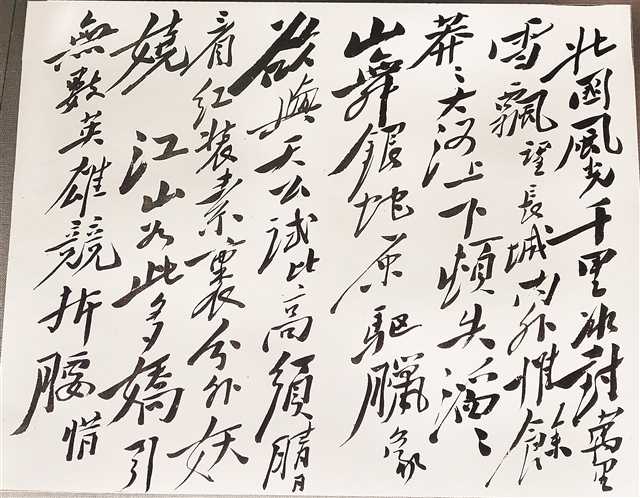 北國風光千里冰封萬里
雪飄望長城内外惟餘
莽〻大河上下頓失滔〻
山舞銀蛇原駈臘象
欲與天公試比高須晴日
看红装素裹分外妖
嬈江山如此多嬌引
無數英雄競折腰惜